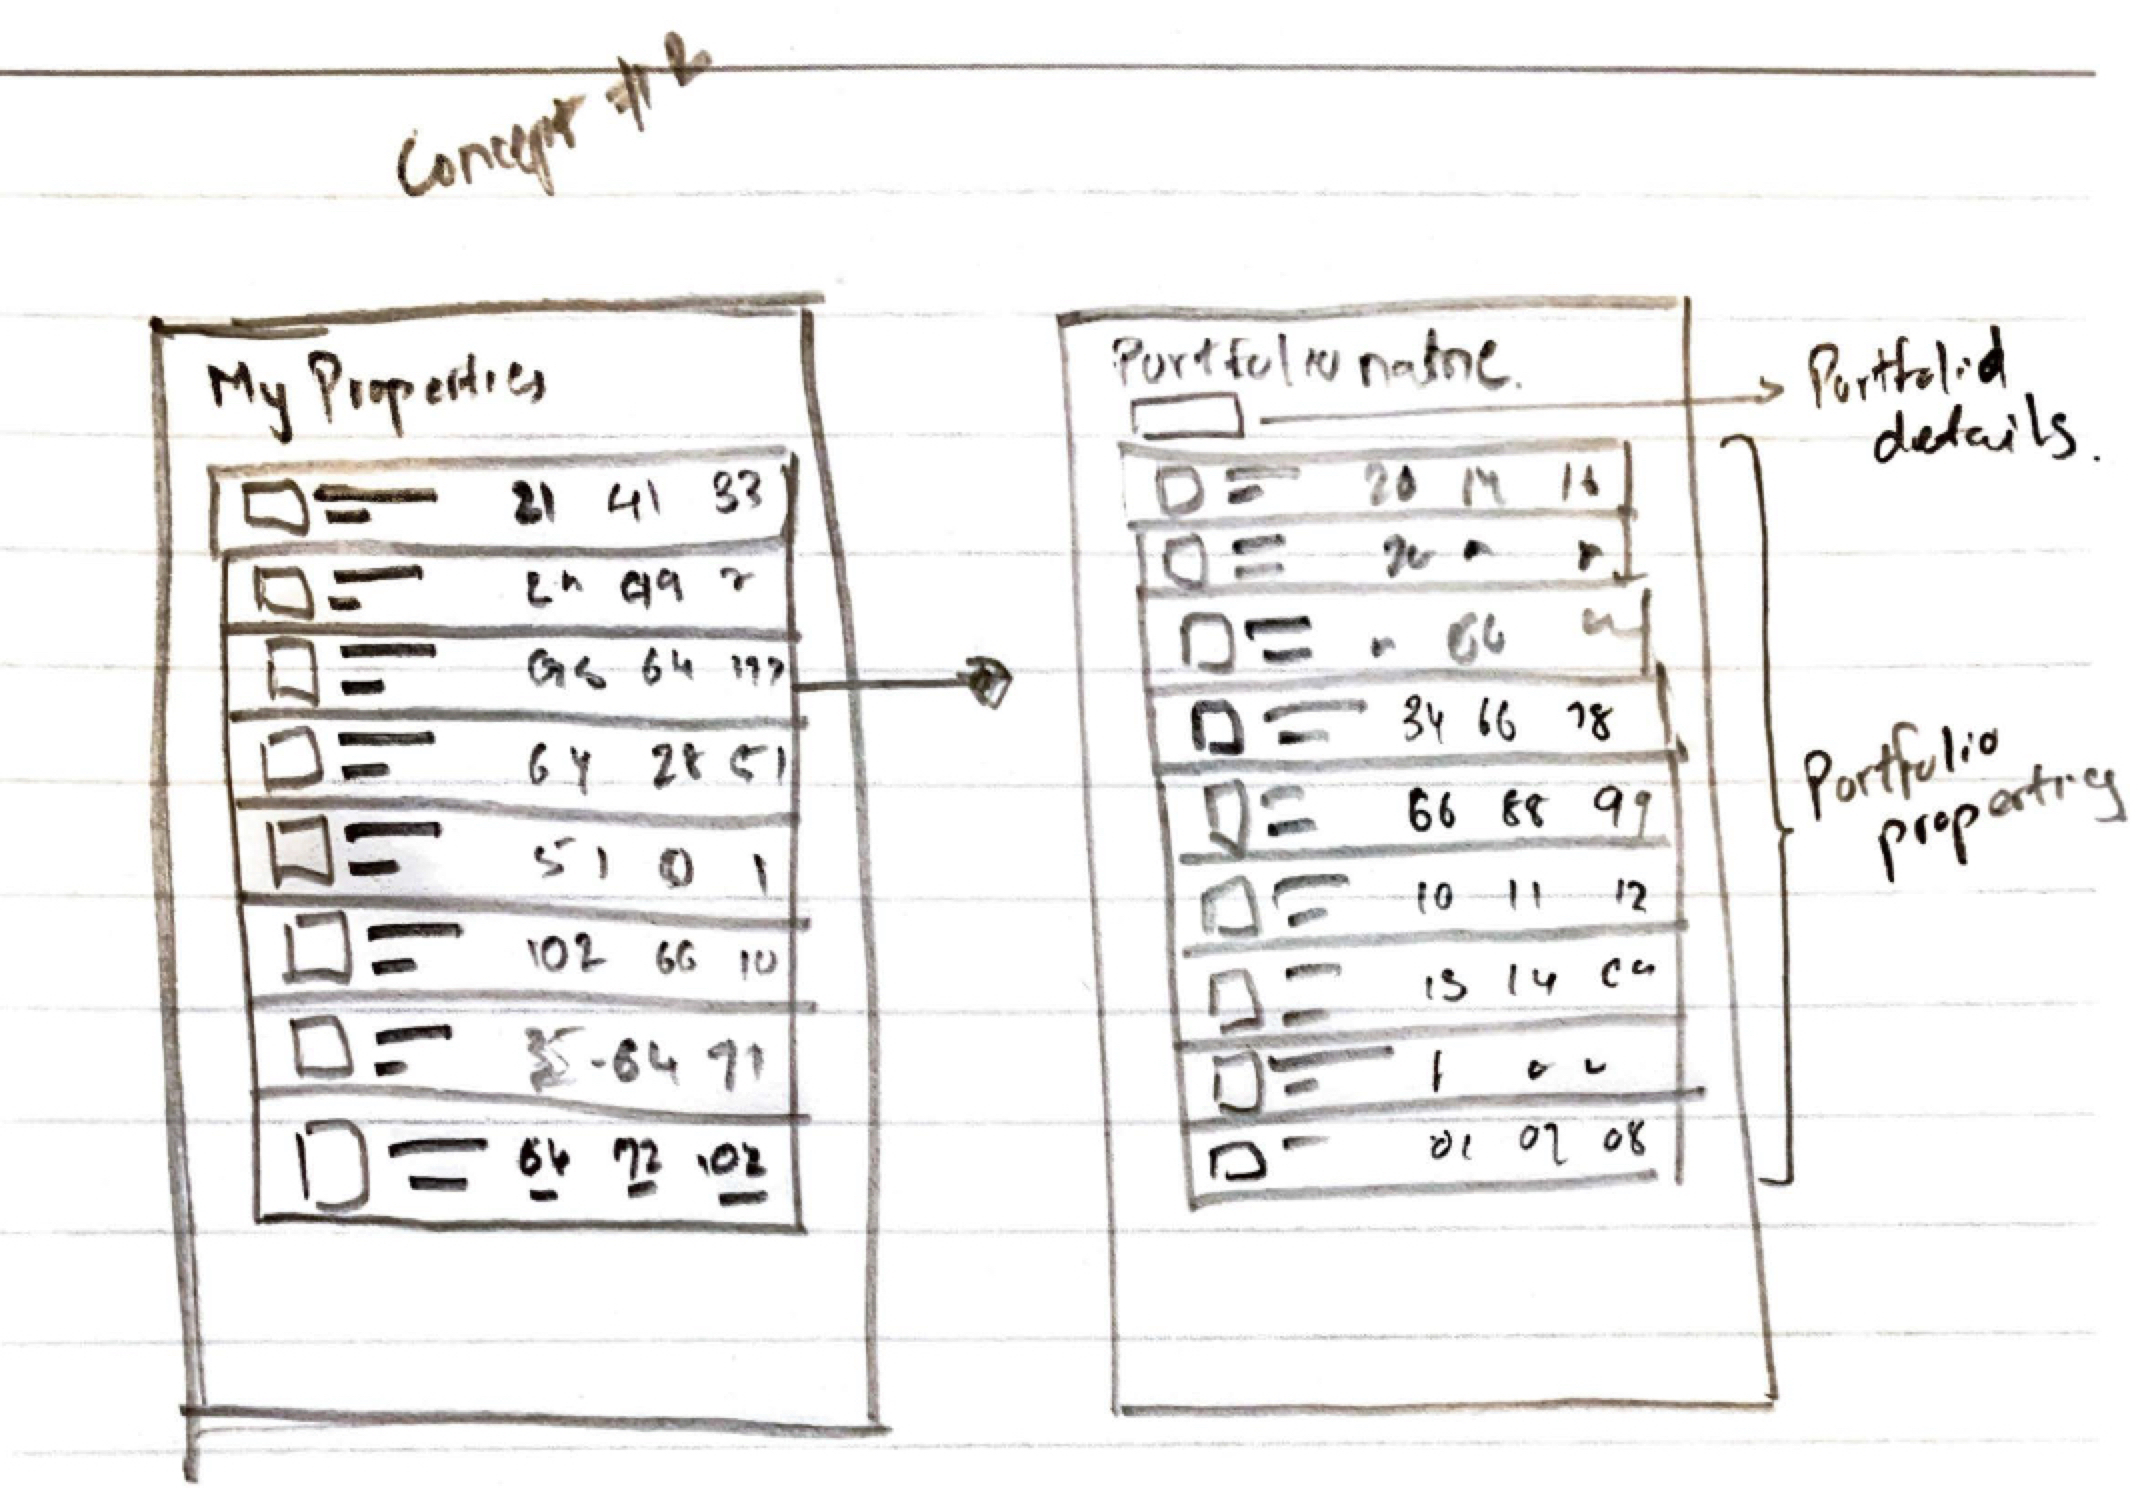 Concept #2
My Properties
21 41 33
64
64 28 51
51 0 1
102 66 10
35-64 71
64 72 102
Portfolio name.
Portfolio
details.
20 14
66
34 66 78
66 88 99
10 11 12
13 14
1
01 07 08
Portfolio
properties